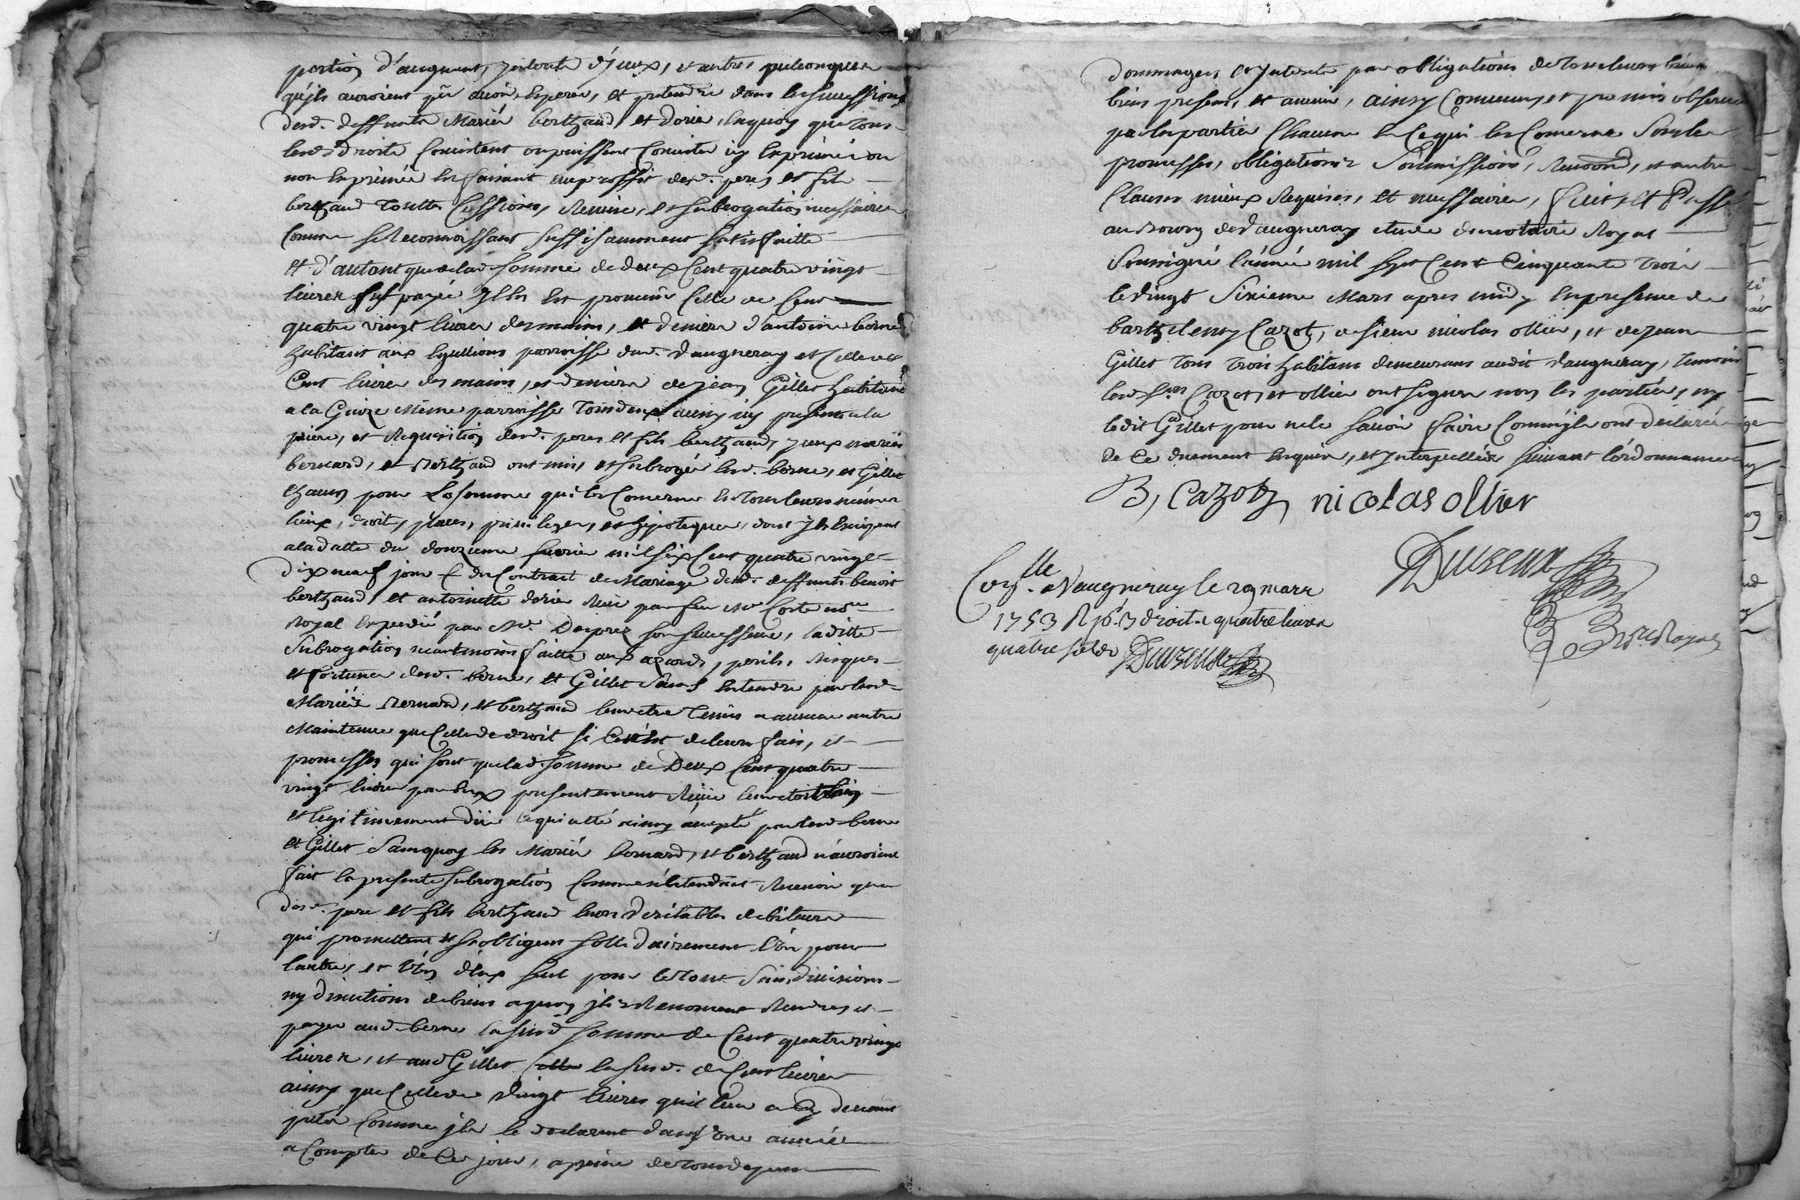 portion d'augment, joinct d'jceux, et autres quelconques
qu'ils auroient pû avoir, esperer, et pretendre dans les successions
desd. deffunts Mariés berthaud et dorier, enquoy que tous
lesd. droits consistent ou puissent consister icy exprimés ou
non exprimés en faisant au proffit desd. pere et fils
berthaud touttes cessions, remise, et subrogation necessaires
comme se reconnoissant suffisamment satisfaitte
et d'autant que de lad. somme de deux cent quatre vingt
livres susd. payée Il en est provenu celle de cent
quatre vingt livres des mains, et deniers d'antoine berne
habitant aux Eguillions parroisse dud. Vaugneray et celle de
Cent livres des mains, et deniers de jean Gillet habitant
a la Guise Même parroisse tous deux aussy icy presents a la
priere, et requisition desd. pere et fils berthaud, jceux mariés
bernard, et Berthaud ont mis, et subrogé lesd. berne, et Gillet
chacun pour la somme qui les concerne en tous leurs mêmes
lieux, droits, places, privileges, et hypoteques, dont jls jouissent
a la datte du douzieme fevrier mil six cent quatre vingt
dix neuf jour du Contract de Mariage desd. deffunts benoit
berthaud et antoinette dorier Receu par feu Me Coste nore
Royal Expedié par Me. Desprez son successeur, laditte
subrogation neantmoins faitte aux azards, perils, risques
et fortunes desd. berne, et Gillet sans entendre par lesd.
Mariés Bernard, et berthaud leur etre tenus a aucune autre
Maintenue que celle de droit si ce n'est de leurs fait, et
promesses qui sont que lad. somme de Deux Cent quatre
vingt livres par eux presentement Reçüe leur etoit bien
et legitimement düe ce qui a été ainsy accepté par lesd. berne
et Gillet sans quoy les Mariés bernard, et berthaud n'auroient
fait la presente subrogation comme n'entendant Recevoir que
desd. pere et fils berthaud leurs veritables debiteurs
qui promettent et s'obligent sollidairement l'un pour
l'autre, et l'un d'eux seul pour le tout sans division
ny discutions de biens a quoy jls Renoncent Rendre et
payer aud. berne la susd. somme de Cent quatre vingt
livres, et aud Gillet la susd. de Cent livres
ainsy que celle de vingt livres qu'il leur a cy devant
pretée comme jls le declarent dans une année
a Compter de Ce jour, a peine de tous depens
dommages et Interets par obligations de tous leurs biens
biens present, et avenir, ainsy Convenu, et promis observer
par les parties chacune en ce qui les concerne sous les
promesses, obligations soumissions, renonc.ons, et autres
Clauses mieux Requises, et necessaires, fait et Passé
au Bourg de Vaugneray etude du notaire Royal
soussigné l'année mil sept cent cinquante trois
le vingt sixieme Mars apres midy en presence de
barthelemy Cazot, de sieur nicolas ollier, et de jean
Gillet tous trois habitans demeurans audit Vaugneray, temoins
lesd. srs Cazot, et ollier ont signés non les parties, ny
ledit Gillet pour ne le savoir faire comme jls ont declarés
de ce duement enquis, et Interpellés suivant l'ordonnance
B, Cazot nicolas ollier
Duvseux
Con.lle a Vaugneray le 29 mars
1753 R 16.s droit quatre livres
quatre sols Duvseux
nore Royal